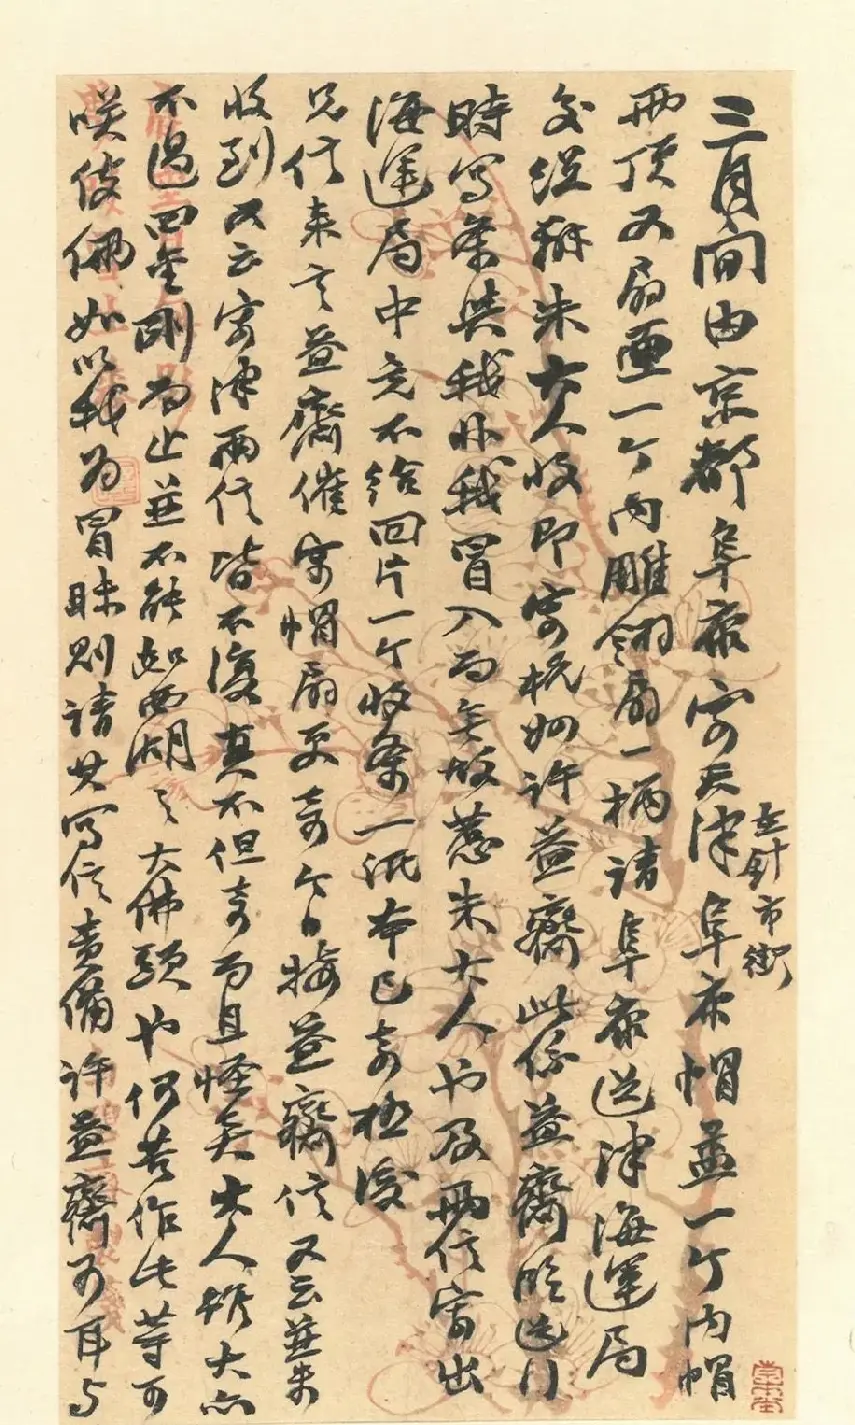 三月间由京都阜康寄天津阜康帽盖一个内帽
在针市街
两顶又扇匣一个内雕翎扇一柄请阜康送津海运局
交总办朱大人收即寄杭州许益斋此系益斋临送行
時写条与我非我冒入而无故惹朱大人也及两信寄出
海运局中竟不给回片一个收条一纸本已奇极后
兄信来言益斋催寄帽扇更奇今日接益斋信又云并未
收到又云寄津两信皆不复真不但奇而且怪矣大人横大而
不过四金刚而止并不能如西湖之大佛头也何苦作此等可
咲伎俩如以我为冒昧则请其写信责备许益斋可耳与